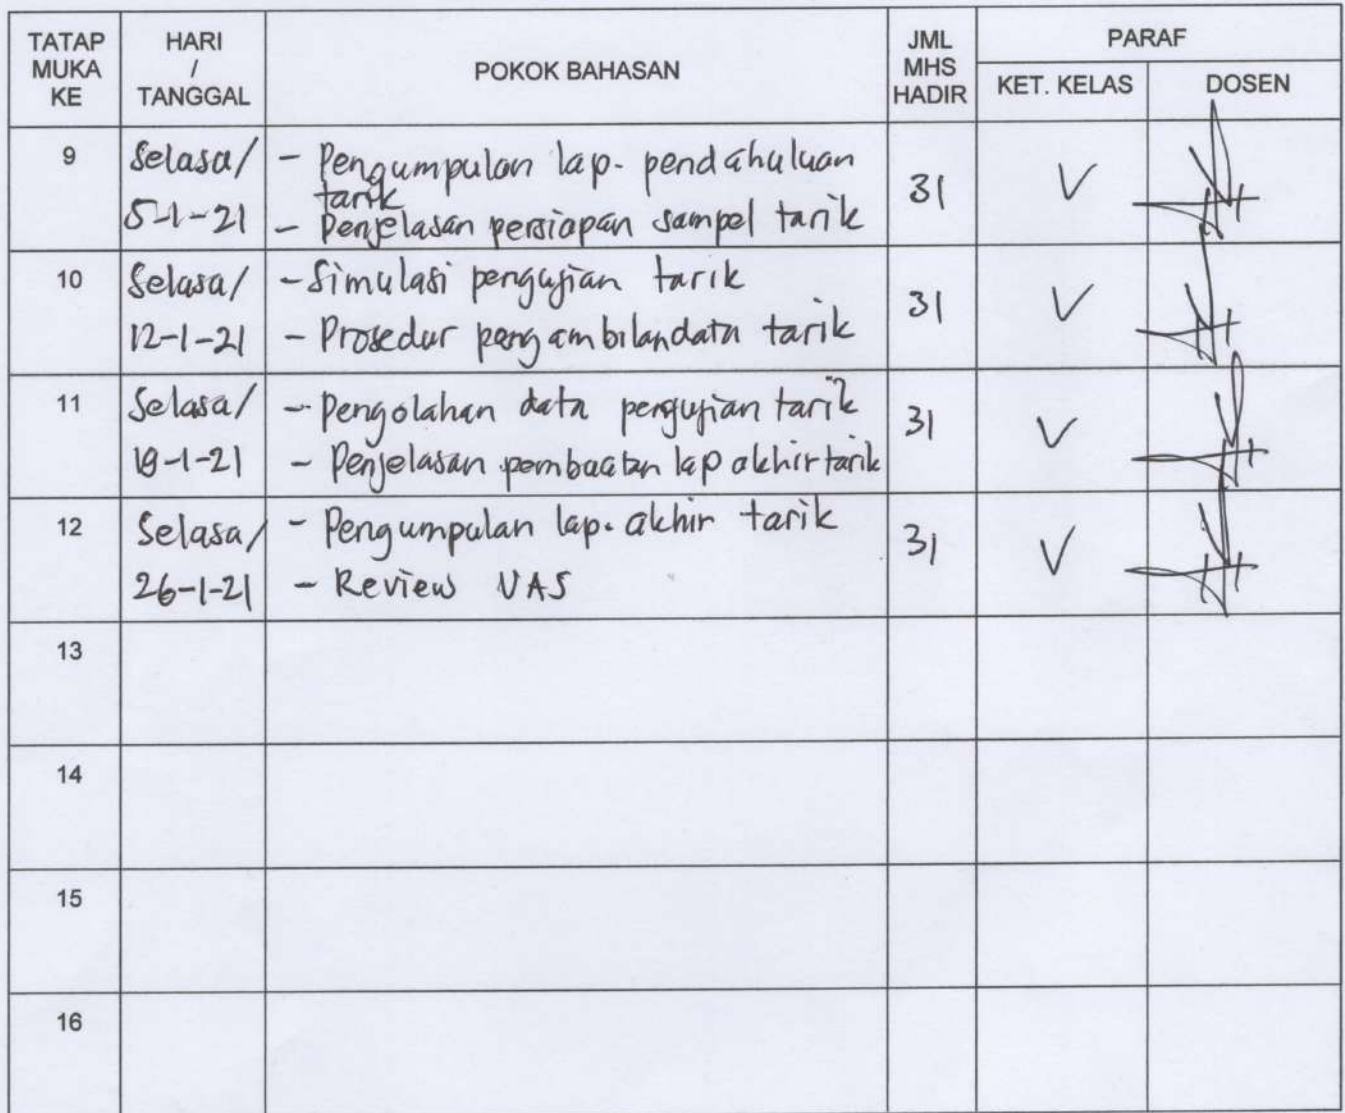 TATAP MUKA KE
HARI / TANGGAL
POKOK BAHASAN
JML MHS HADIR
PARAF
KET. KELAS
DOSEN
9
Selasa/
5-1-21
- Pengumpulan lap. pendahuluan
tarik
- Penjelasan persiapan sampel tarik
31
V
10
Selasa/
12-1-21
- Simulasi pengujian tarik
- Prosedur pengambilandata tarik
31
V
11
Selasa/
19-1-21
- Pengolahan data pengujian tarik
- Penjelasan pembuatan lap akhir tarik
31
V
12
Selasa/
26-1-21
- Pengumpulan lap. akhir tarik
- Review UAS
31
V
13
14
15
16